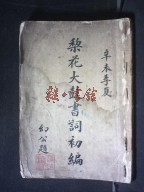 辛未季夏
梨花大鼓書詞初編
幻公題